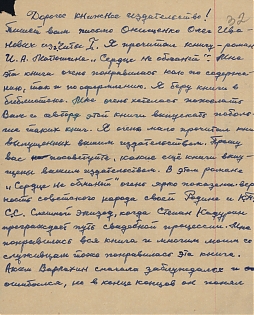 32
Дорогое книжное издательство!
Пишет вам письмо Онищенко Олег Ива-
нович из г. Я прочитал книгу-роман
И. А. "Сердце не обманет". Мне
эта книга очень понравилась как по содержа-
нию, так и по оформлению. Я беру книги в
библиотеке. Мне очень хотелось пожелать
Вам и автору этой книги выпускать поболь-
ше таких книг. Я очень мало прочитал книг
выпущенных вашим издательством. Прошу
вас посоветуйте, какие ещё книги выпу-
щены вашим издательством. В этом романе
"Сердце не обманет" очень ярко показана вер-
ность советского народа своей Родине и
Смешной эпизод, когда Степан
преграждает путь свадебной процессии. Мне
понравилась вся книга и многим моим со-
служивцам тоже понравилась эта книга.
сначала заблуждался и
ошибался, но в конце концов он понял